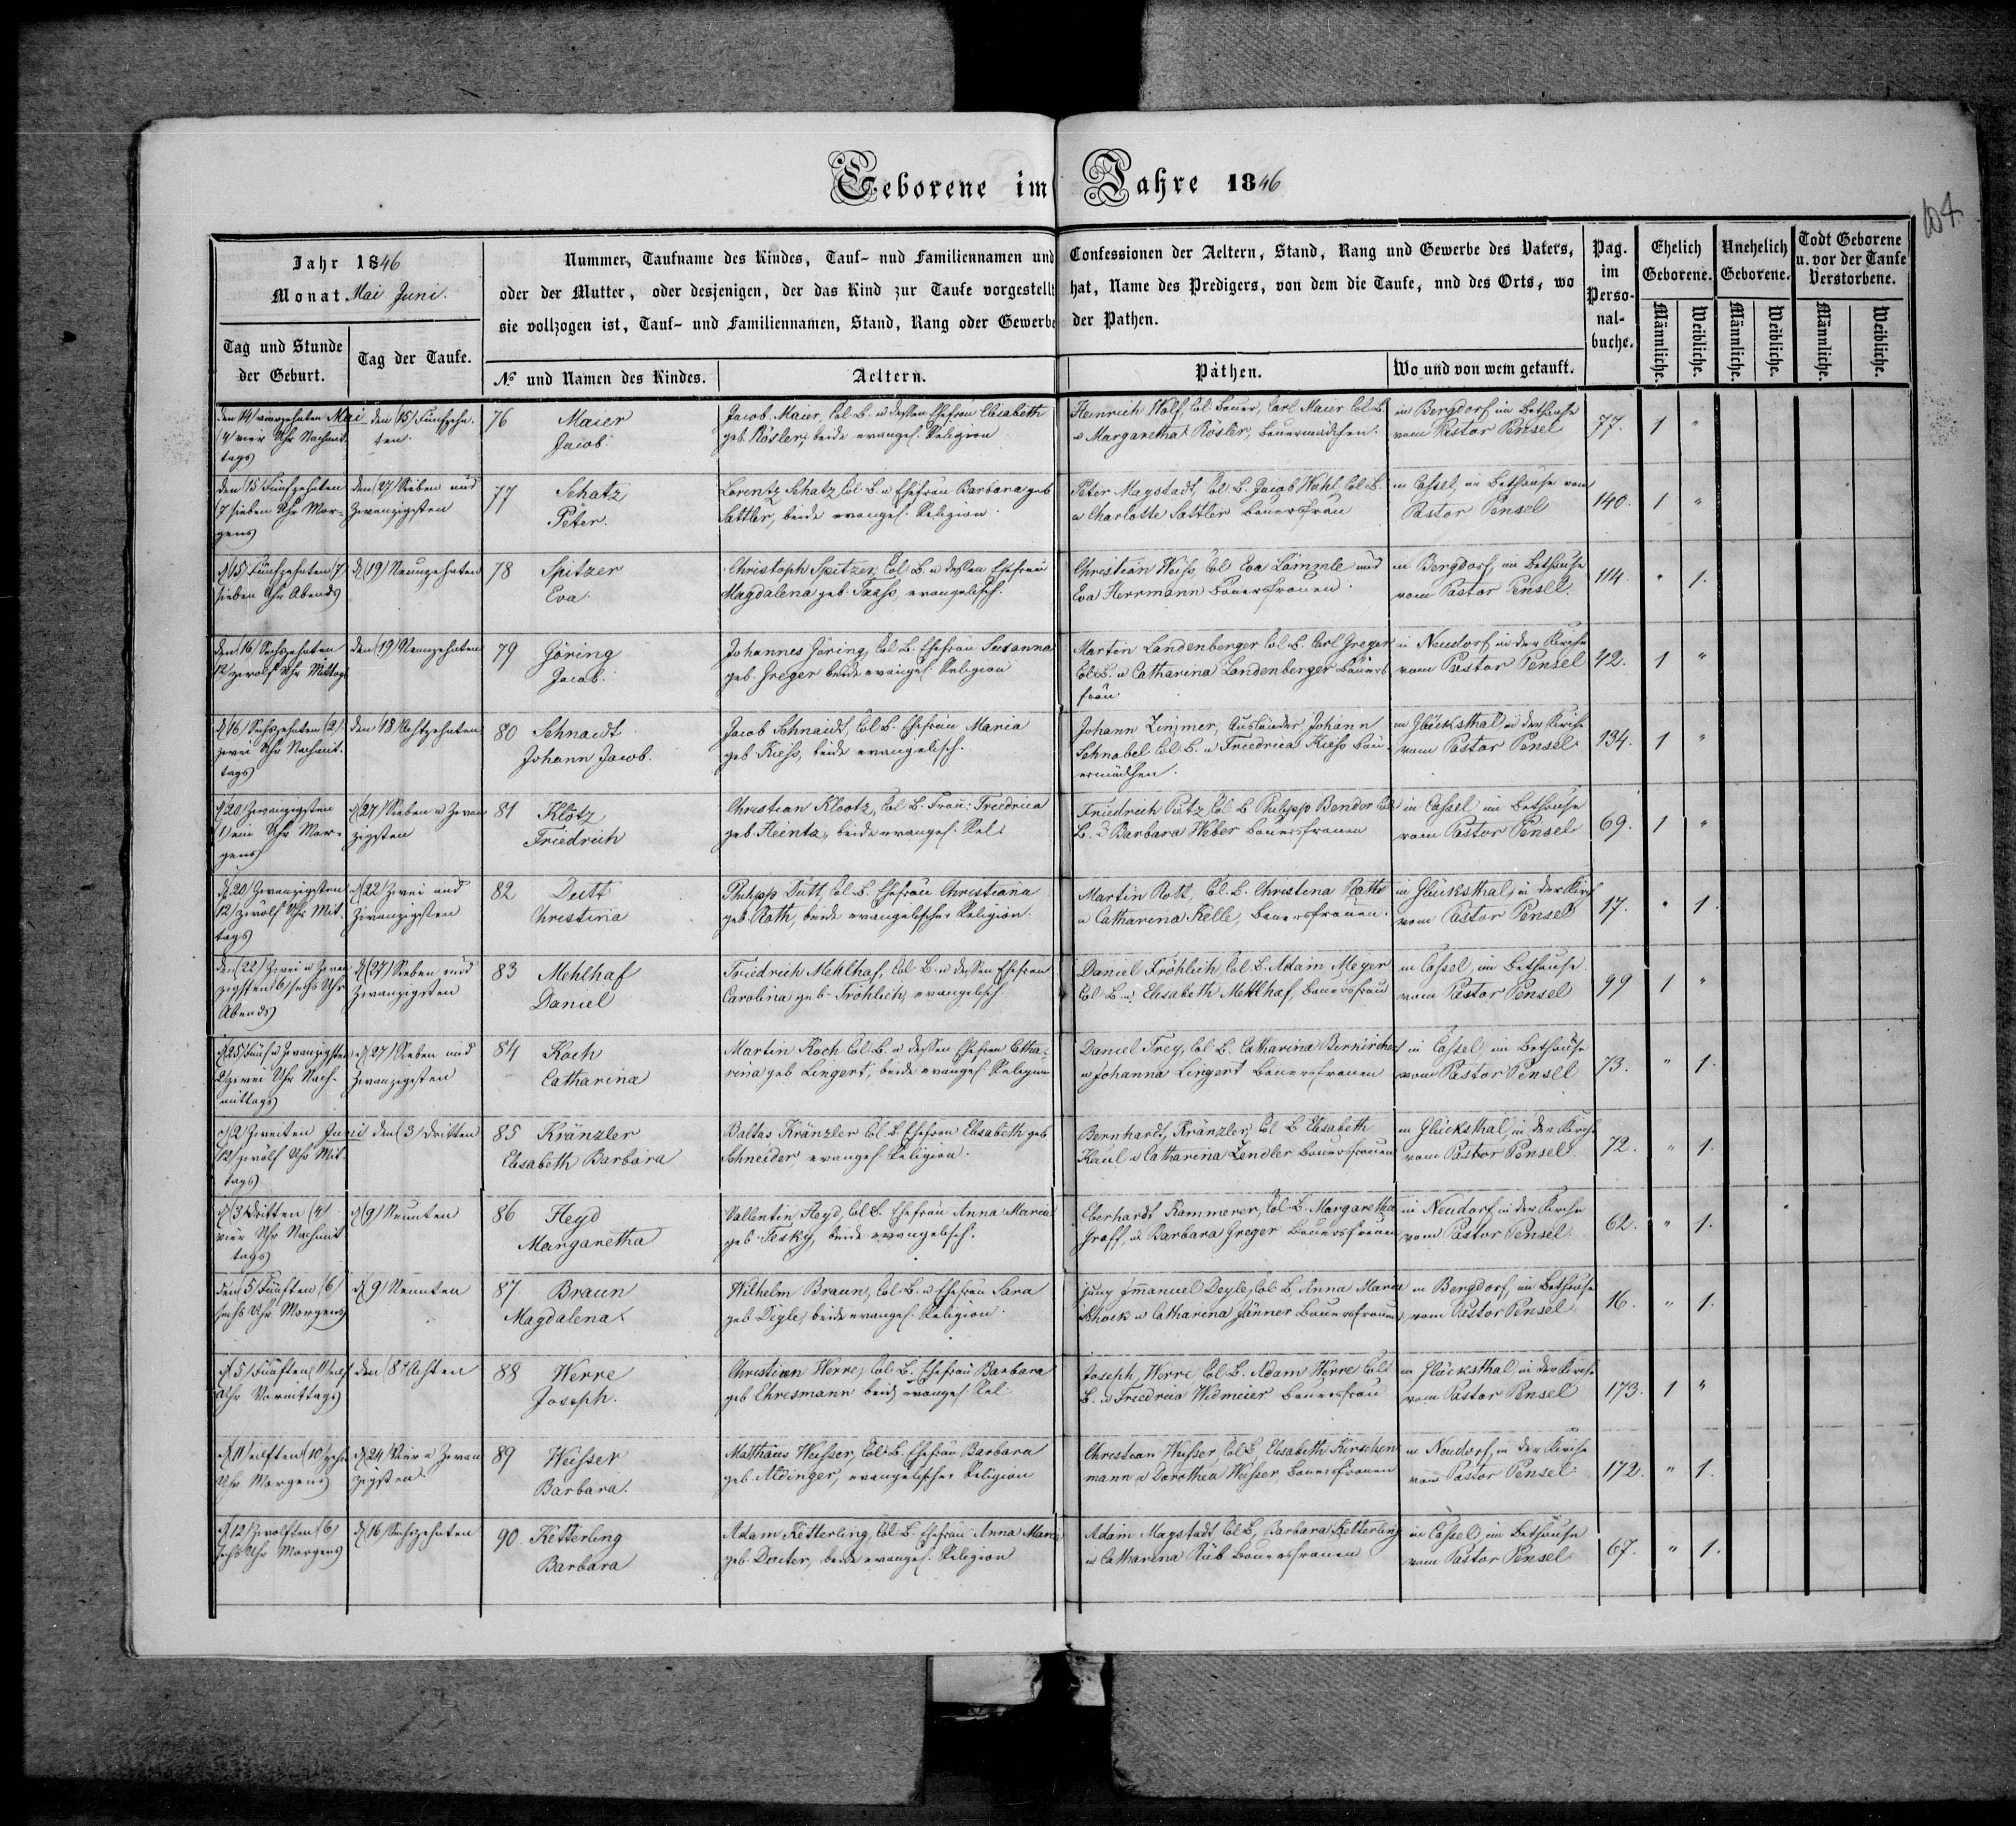 Geborene im Jahre 1846
104.
Jahr 1846
Monat Mai Juni.
Tag und Stunde
der Geburt.
Tag der Taufe.
Nummer, Taufname des Kindes, Tauf- und Familiennamen und
oder der Mutter, oder desjenigen, der das Kind zur Taufe vorgestellt
sie vollzogen ist, Tauf- und Familiennamen, Stand, Rang oder Gewerbe
No und Namen des Kindes.
Aeltern.
Confessionen der Aeltern, Stand, Rang und Gewerbe des Vaters,
hat, Name des Predigers, von dem die Taufe, und des Orts, wo
der Pathen.
Pathen.
Wo und von wem getauft.
Pag.
im
Perso-
nal-
buche.
Ehelich
Geborene.
Unehelich
Geborene.
Todt Geborene
u. vor der Taufe
Verstorbene.
Männliche.
Weibliche.
Männliche.
Weibliche.
Männliche.
Weibliche.
den (14) vierzehnten Mai
(4) vier Uhr Nachmit-
tags
den (15) Fünfzehn-
ten
76 Maier
Jacob
Jacob Maier, Col. B. u dessen Ehefrau Elisabeth
geb. Rösler, beide evangel. Religion
Heinrich Wolf, Col. Bauer, Carl Maier Col. B.
u Margaretha Rösler, Bauermädchen.
in Bergdorf im Bethause
vom Pastor Pensel
77. 1 "
den (15) Fünfzehnten
(7) sieben Uhr Mor-
gens
den (27) Sieben und
Zwanzigsten
77 Schatz
Peter.
Lorentz Schatz Col. B. u Ehefrau Barbara geb
Sattler, beide evangel. Religion.
Peter Magstadt, Col. B. Jacob Wahl Col. B.
u Charlotte Sattler Bauersfrau
in Cassel, im Bethause vom
Pastor Pensel
140. 1 "
d (15) Fünfzehnten (7)
sieben Uhr Abends
d (19) Neunzehnten
78 Spitzer
Eva.
Christoph Spitzer, Col. B. u dessen Ehefrau
Magdalena geb. Faass, evangelisch.
Christian Weiss, Col. Eva Lämmle und
Eva Herrmann Bauersfrauen.
in Bergdorf, im Bethause
vom Pastor Pensel.
114. " 1.
den (16) Sechszehnten
12) zwölf Uhr Mittags
den (19) Neunzehnten
79 Göring
Jacob.
Johannes Göring, Col. B. Ehefrau Susanna
geb. Greger beide evangel. Religion
Martin Landenberger Col. B. Carl Greger
Col. B. u Catharina Landenberger Bauers
frau
in Neudorf in der Kirche
vom Pastor Pensel
42. 1 "
d (16) Sechszehnten (2)
zwei Uhr Nachmit-
tags
den (18) Achtzehnten
80 Schnaidt
Johann Jacob.
Jacob Schnaidt, Col. B. Ehefrau Maria
geb Kiess, beide evangelisch.
Johann Zimmer, Ausländer, Johann
Schnabel Col. B. u Friedrica Kiess Bau-
ermädchen.
in Glücksthal in der Kirche
vom Pastor Pensel
134. 1 "
d (20) Zwanzigsten
(1) ein Uhr Mor-
gens
d (27) Sieben u Zwan
zigsten
81 Klotz
Friedrich
Christian Klootz, Col. B. Frau: Friedrica
geb. Heintz, beide evangel. Rel.
Friedrich Putz, Col. B Philipp Bender Col
B. u Barbara Weber Bauersfrauen
in Cassel im Bethause
vom Pastor Pensel
69. 1 "
d (20) Zwanzigsten
12) zwölf Uhr Mit-
tags
d (22) Zwei und
Zwanzigsten
82 Dutt
Christina
Philipp Dutt, Col. B. Ehefrau Christiana
geb. Roth, beide evangelischer Religion.
Martin Rott, Col. B. Christina Roth
u Catharina Kelle, Bauersfrauen.
in Glücksthal, in der Kirch
vom Pastor Pensel
17. " 1.
den (22) Zwei u Zwan
zigsten (6) sechs Uhr
Abends
d (27) Sieben und
Zwanzigsten
83 Mehlhaf
Daniel
Friedrich Mehlhaf, Col. B. u dessen Ehefrau
Carolina geb. Fröhlich, evangelisch.
Daniel Fröhlich, Col. B. Adam Meyer
Col. B. u Elisabeth Mehlhaf, Bauersfrau
in Cassel, im Bethause
vom Pastor Pensel
99 1 "
d (25) Fünf u Zwanzigsten
(2) zwei Uhr Nach-
mittags
d (27) Sieben und
Zwanzigsten
84 Koch
Catharina
Martin Koch Col. B. u dessen Ehefrau Catha-
rina geb Lingert, beide evangel. Religion
Daniel Frey, Col. B. Catharina
u Johanna Lingert Bauersfrauen
in Cassel, im Bethause
vom Pastor Pensel
73. " 1.
d (2) Zweiten Juni
(12) zwölf Uhr Mit-
tags
den (3) dritten
85 Kränzler
Elisabeth Barbara
Baltas Kränzler Col. B. Ehefrau Elisabeth geb
Schneider, evangel. Religion.
Bernhardt, Kränzler, Col. B. Elisabeth
Kaul u Catharina Zendler Bauersfrauen
in Glücksthal, in der Kirche
vom Pastor Pensel
72. " 1.
d (3) dritten (4)
vier Uhr Nachmit
tags
d (9) Neunten
86 Heyd
Marganetha
Vallentin Heyd, Col. B. Ehefrau Anna Maria
geb. Fesky, beide evangelisch.
Eberhardt Kammerer, Col. B. Margaretha
Graff, u Barbara Greger Bauersfrauen
in Neudorf in der Kirche
vom Pastor Pensel
62. " 1.
den (5) Fünften (6)
sechs Uhr Morgens
d (9) Neunten
87. Braun
Magdalena
Wilhelm Braun, Col. B. u Ehefrau Sara
geb Digle, beide evangel. Religion.
jung Imanuel Deyle, Col. B, Anna Maria
Schock u Catharina Jänner Bauersfrauen
in Bergdorf, im Bethause
vom Pastor Pensel
16. " 1.
d (5) Fünften (11) eilf
Uhr Vormittags
den (8) Achten
88 Werre
Joseph.
Christian Werre, Col. B. Ehefrau Barbara
geb Ehresmann beide evangel. Rel.
Joseph, Werre Col. B. Adam Werre Col.
B. u Friedrica Widmeier Bauersfrau
in Glücksthal, in der Kirche
vom Pastor Pensel
173. 1 "
d (11) eilften (10) zehn
Uhr Morgens
d (24) Vier u Zwan
zigsten
89 Weisser
Barbara.
Matthäus Weisser, Col. B. Ehefrau Barbara
geb. Aldinger, evangelischer Religion
Christian Weisser, Col. B. Elisabeth Kirschen
mann u Dorothea Weisser, Bauersfrauen
in Neudorf, in der Kirche
vom Pastor Pensel
172. " 1.
d (12) Zwölften (6)
sechs Uhr Morgens
d (16) Sechszehnten
90 Ketterling
Barbara
Adam Ketterling, Col. B. Ehefrau Anna Maria
geb. beide evangel. Religion
Adam Magstadt, Col. B, Barbara Ketterling
u Catharina Rüb Bauersfrauen
in Cassel, im Bethause
vom Pastor Pensel
67. " 1.